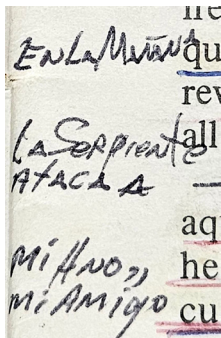 EN LA MAÑANA
LA SERPIENTE
ATACA A
MI HNO,,
MI AMIGO
qu
rev
all
—
aq
he
cu